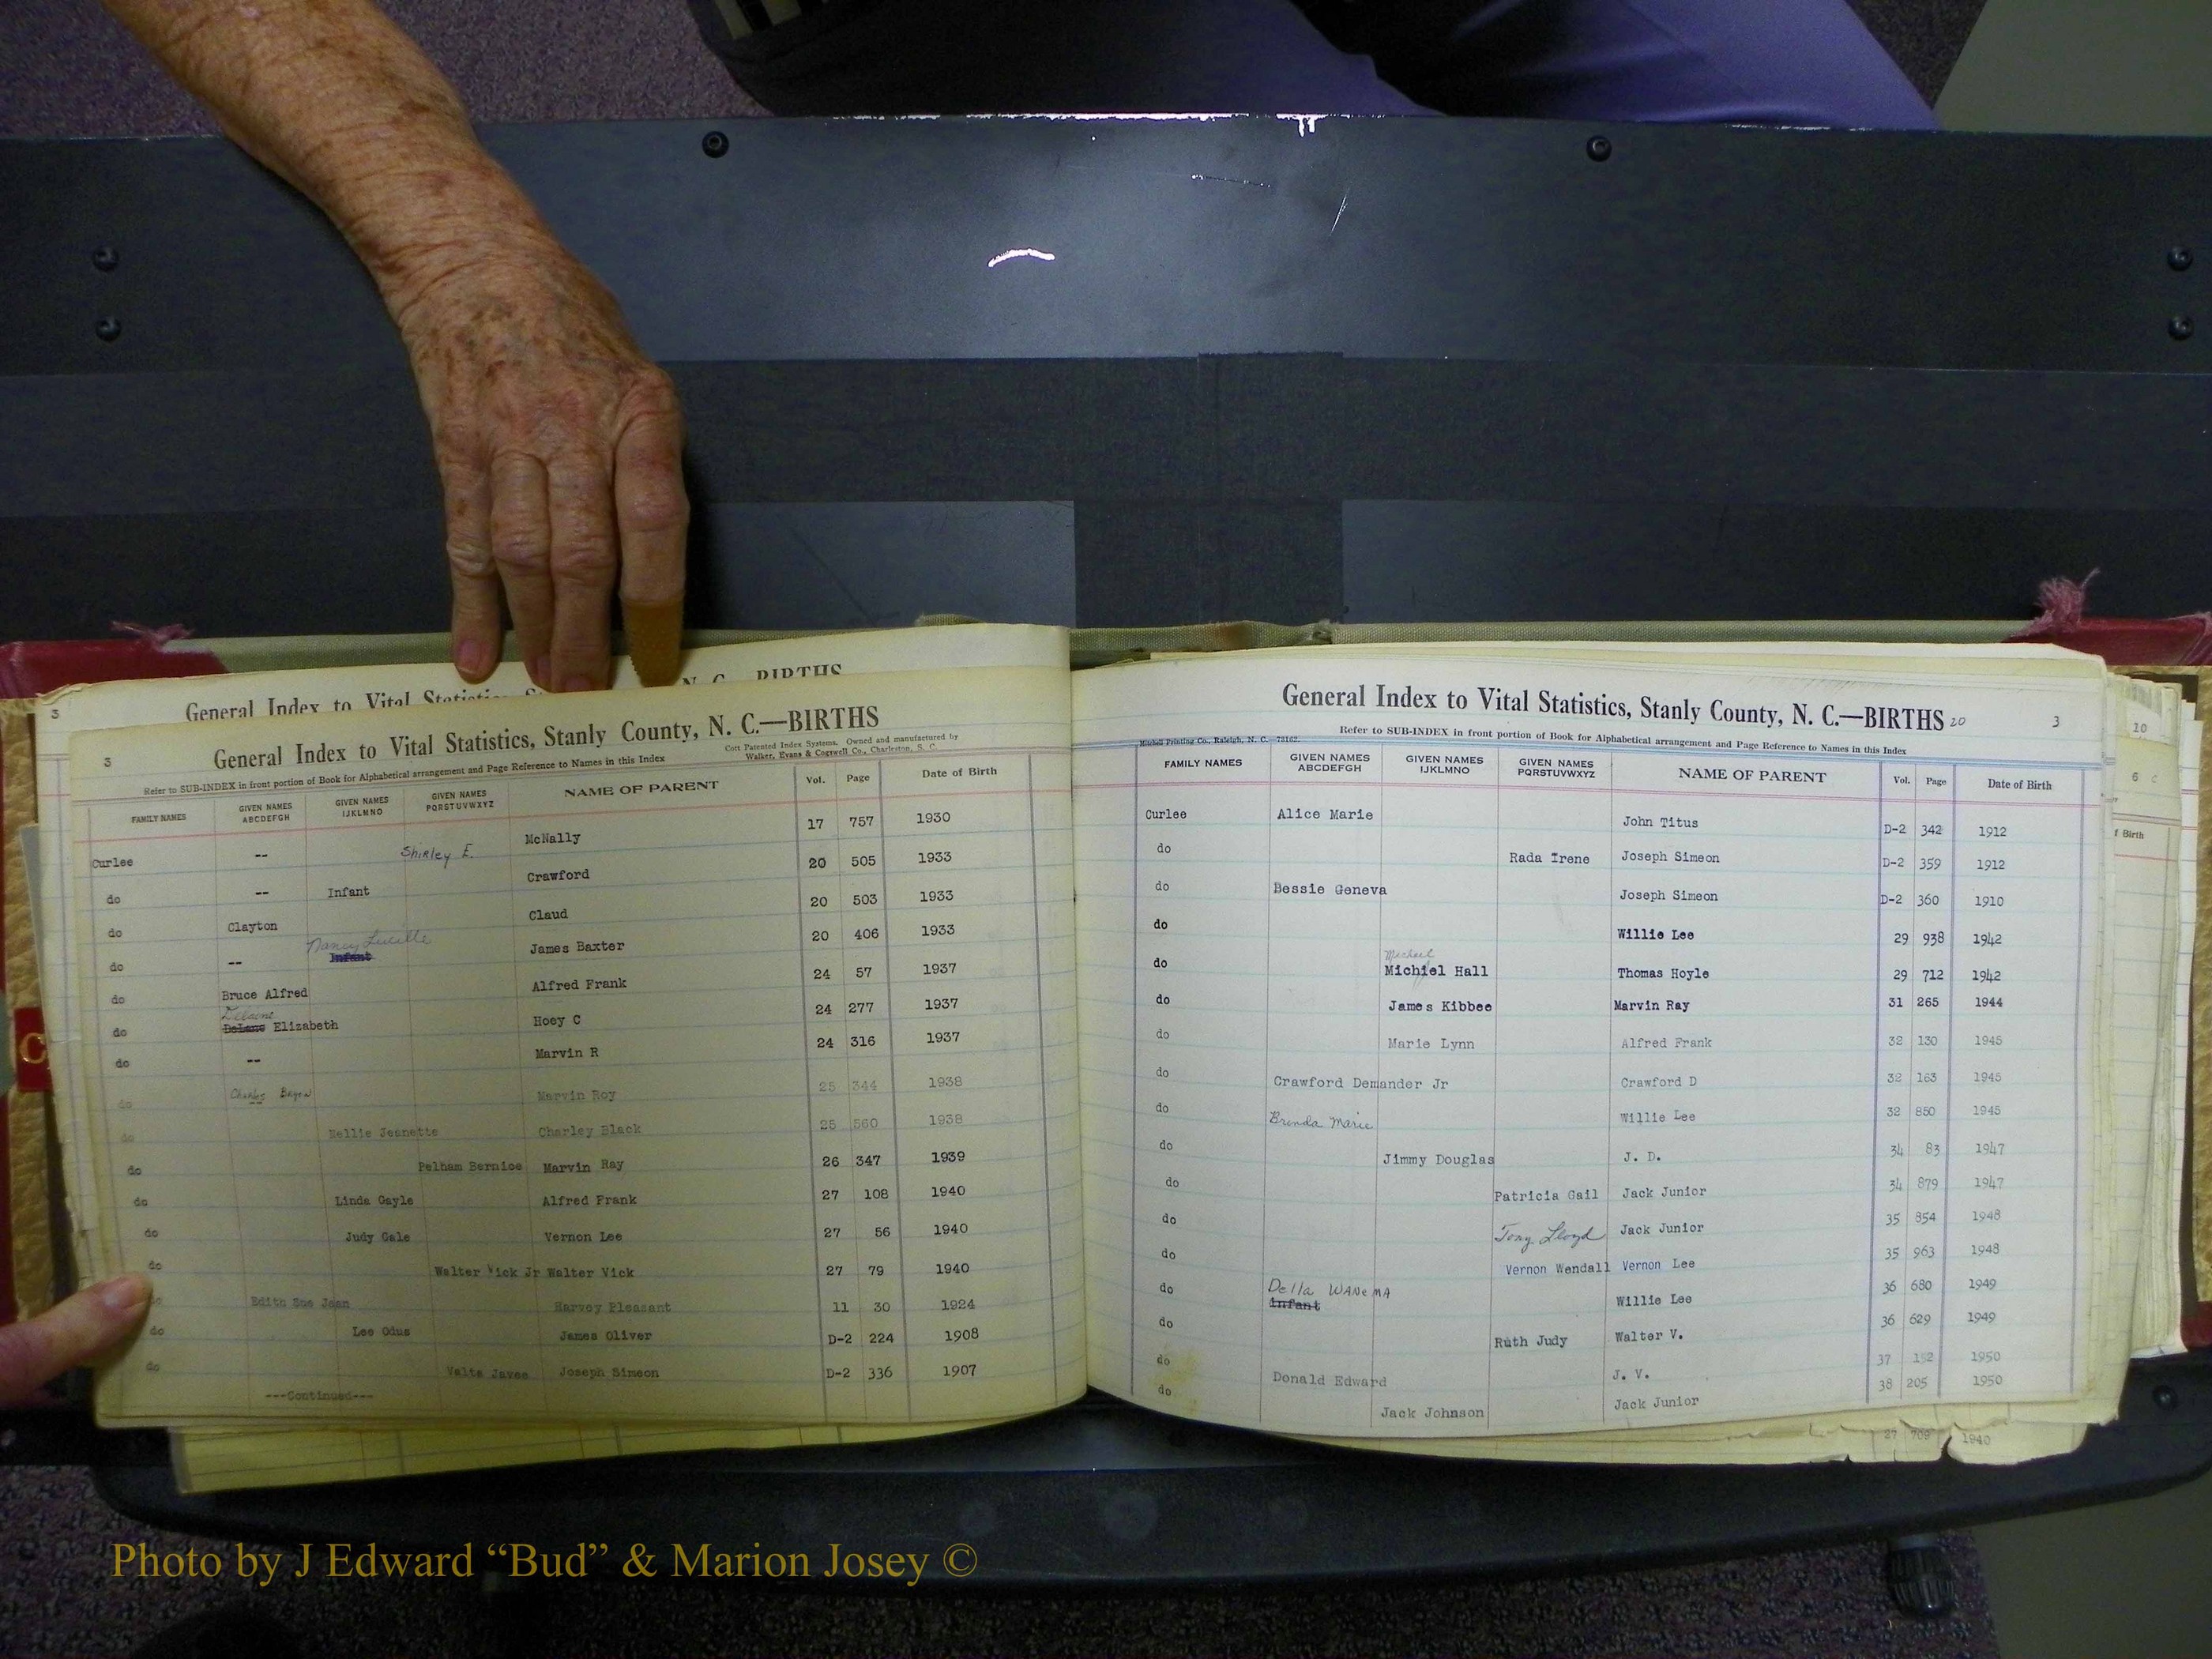 General Index to Vital Statistics, N. C.—BIRTHS
3
3
General Index to Vital Statistics, Stanly County, N. C.—BIRTHS
Refer to SUB-INDEX in front portion of Book for Alphabetical arrangement and Page Reference to Names in this Index
Cott Patented Index Systems. Owned and manufactured by
Walker, Evans & Cogswell Co., Charleston, S. C.
FAMILY NAMES GIVEN NAMES ABCDEFGH GIVEN NAMES IJKLMNO GIVEN NAMES PQRSTUVWXYZ NAME OF PARENT Vol. Page Date of Birth
Curlee -- Shirley E. McNally 17 757 1930
do -- Infant Crawford 20 505 1933
do Clayton Claud 20 503 1933
Nancy Lucille
do -- Infant James Baxter 20 406 1933
do Bruce Alfred Alfred Frank 24 57 1937
Delaine
do DeLane Elizabeth Hoey C 24 277 1937
do -- Marvin R 24 316 1937
do Charles Bryon Marvin Roy 25 344 1938
do Nellie Jeanette Charley Black 25 560 1938
do Pelham Bernice Marvin Ray 26 347 1939
do Linda Gayle Alfred Frank 27 108 1940
do Judy Gale Vernon Lee 27 56 1940
do Walter Vick Jr Walter Vick 27 79 1940
do Edith Sue Jean Harvey Pleasant 11 30 1924
do Lee Odus James Oliver D-2 224 1908
do Valta Javee Joseph Simeon D-2 336 1907
---Continued---
General Index to Vital Statistics, Stanly County, N. C.—BIRTHS 20 3
Refer to SUB-INDEX in front portion of Book for Alphabetical arrangement and Page Reference to Names in this Index
Mitchell Printing Co., Raleigh, N. C.
FAMILY NAMES GIVEN NAMES ABCDEFGH GIVEN NAMES IJKLMNO GIVEN NAMES PQRSTUVWXYZ NAME OF PARENT Vol. Page Date of Birth
Curlee Alice Marie John Titus D-2 342 1912
do Rada Irene Joseph Simeon D-2 359 1912
do Bessie Geneva Joseph Simeon D-2 360 1910
do Willie Lee 29 938 1942
Michael
do Michiel Hall Thomas Hoyle 29 712 1942
do James Kibbee Marvin Ray 31 265 1944
do Marie Lynn Alfred Frank 32 130 1945
do Crawford Demander Jr Crawford D 32 163 1945
do Brenda Marie Willie Lee 32 850 1945
do Jimmy Douglas J. D. 34 83 1947
do Patricia Gail Jack Junior 34 879 1947
do Tony Lloyd Jack Junior 35 854 1948
do Vernon Wendall Vernon Lee 35 963 1948
Della WANeMA
do Infant Willie Lee 36 680 1949
do Ruth Judy Walter V. 36 629 1949
do Donald Edward J. V. 37 152 1950
do Jack Johnson Jack Junior 38 205 1950
27 709 1940
10
6
f Birth
C
Photo by J Edward “Bud” & Marion Josey ©